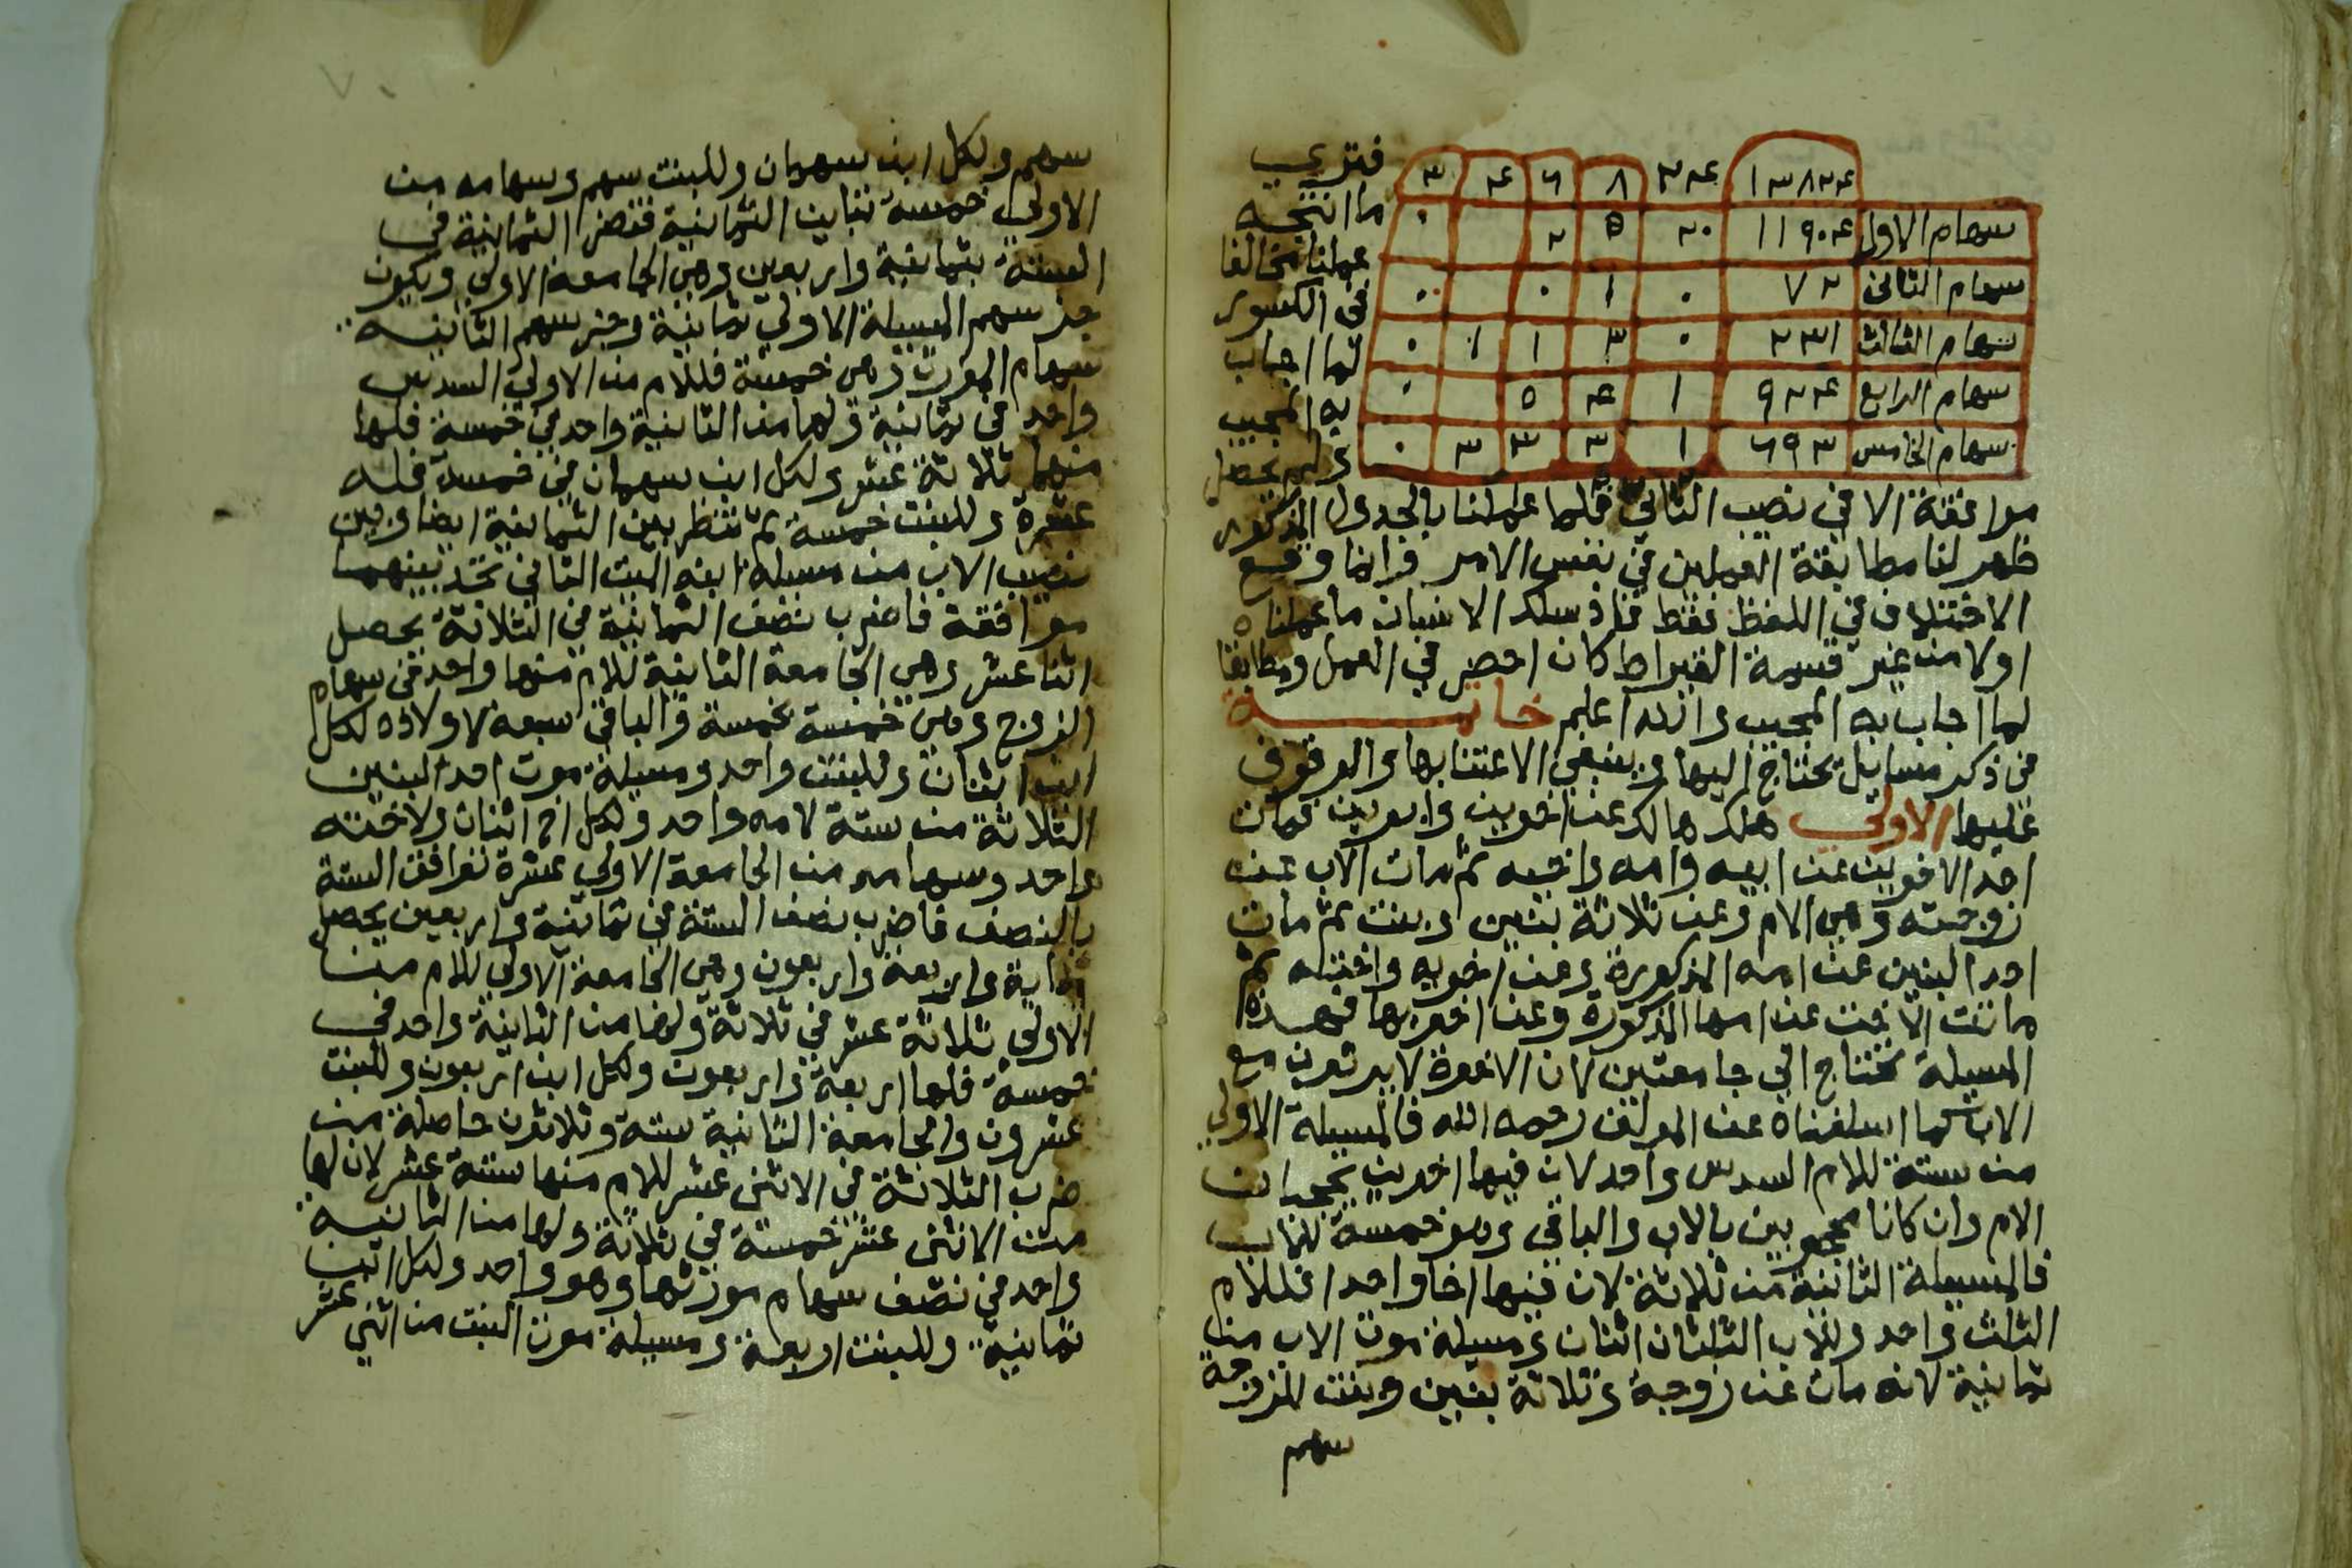 ١٣٨٢٤ ٢٤ ٨ ٦ ٤ ٣
سهام الاول ١١٩٠٤ ٢٠ ٥ ٢ ٠
سهام الثانى ٧٢ ٠ ١ ٠ ٠
سهام الثالث ٢٣١ ٠ ٣ ١ ١ ٠
سهام الرابع ٩٢٤ ١ ٤ ٥ ٠
سهام الخامس ٦٩٣ ١ ٣ ٣ ٣ ٠
فترى
ما انتجه
عملنا مخالفا
فى الكسور
لما اجاب
به المجيب
ولم يحصل
موافقة الا في نصيب الثاني فلما عملنا بالجدول المذكور
ظهر لنا مطابقة العملين في نفس الامر وانما وقع
الاختلاف في اللفظ فقط فاذ سلك الانسان ما عملناه
اولا من غير قسمة القيراط كان اخصر في العمل ومطابقا
لما اجاب به المجيب والله اعلم خاتمة
فى ذكر مسايل يحتاج اليها وينبغي الاعتنا بها والوقوف
عليها الاولى هلك هالك عن اخوين وابوين فمات
احد الاخوين عن ابيه وامه واخيه ثم مات الاب عن
زوجته وهي الام وعن ثلاثة بنين وبنت ثم مات
احد البنين عن امه المذكورة وعن اخويه واخته ثم
ماتت الاخت عن امها المذكورة وعن اخويها فهذه
المسيلة تحتاج الى جامعتين لان الاخوة لا يرثون مع
الاب كما اسلفناه عن المولف رحمه الله فالمسيلة الاولي
من ستة للام السدس واحد لان فيها اخوين يحجبان
الام وان كانا محجوبين بالاب والباقي وهو خمسة للاب
فالمسيلة الثانية من ثلاثة لان فيها اخا واحدا فللام
الثلث واحد وللاب الثلثان اثنان ومسيلة موت الاب من
ثمانية لانه مات عن زوجة وثلاثة بنين وبنت للزوجة
سهم
سهم ولكل ابن سهمان وللبنت سهم وسهامه من
الاولي خمسة تباين الثمانية فتضرب الثمانية في
الستة بثمانية واربعين وهي الجامعة الاولي ويكون
جز سهم المسيلة الاولي ثمانية وجز سهم الثانيه
سهام المورث وهي خمسة فللام من الاولي السدس
واحد في ثمانية ولها من الثانية واحد في خمسة فلها
منها ثلاثة عشر ولكل ابن سهمان في خمسة فله
عشرة وللبنت خمسة ثم تنظر بين الثمانية ايضا وبين
نصيب الاب من مسيلة ابنه الميت الثاني تجد بينهما
موافقة فاضرب نصف الثمانية في الثلاثة يحصل
اثنا عشر وهي الجامعة الثانية للام منها واحد في سهام
الزوج وهي خمسة بخمسة والباقي سبعة لاولاده لكل
ابن اثنان وللبنت واحد ومسيلة موت احد البنين
الثلاثة من ستة لامه واحد ولكل اخ اثنان ولاخته
واحد وسهامه من الجامعة الاولي عشرة توافق الستة
بالنصف فاضرب نصف الستة في ثمانية واربعين يحصل
ماية واربعة واربعون وهي الجامعة الاولي للام من
الاولي ثلاثة عشر في ثلاثة ولها من الثانية واحد في
خمسة فلها اربعة واربعون ولكل ابن اربعون وللبنت
عشرون والجامعة الثانية ستة وثلاثون حاصلة من
ضرب الثلاثة في الاثنى عشر للام منها ستة عشر لان لها
من الاثنى عشر خمسة في ثلاثة ولها من الثانيه
واحد في نصف سهام مورثها وهو واحد ولكل ابن
ثمانية وللبنت اربعة ومسيلة موت البنت من اثني عشر